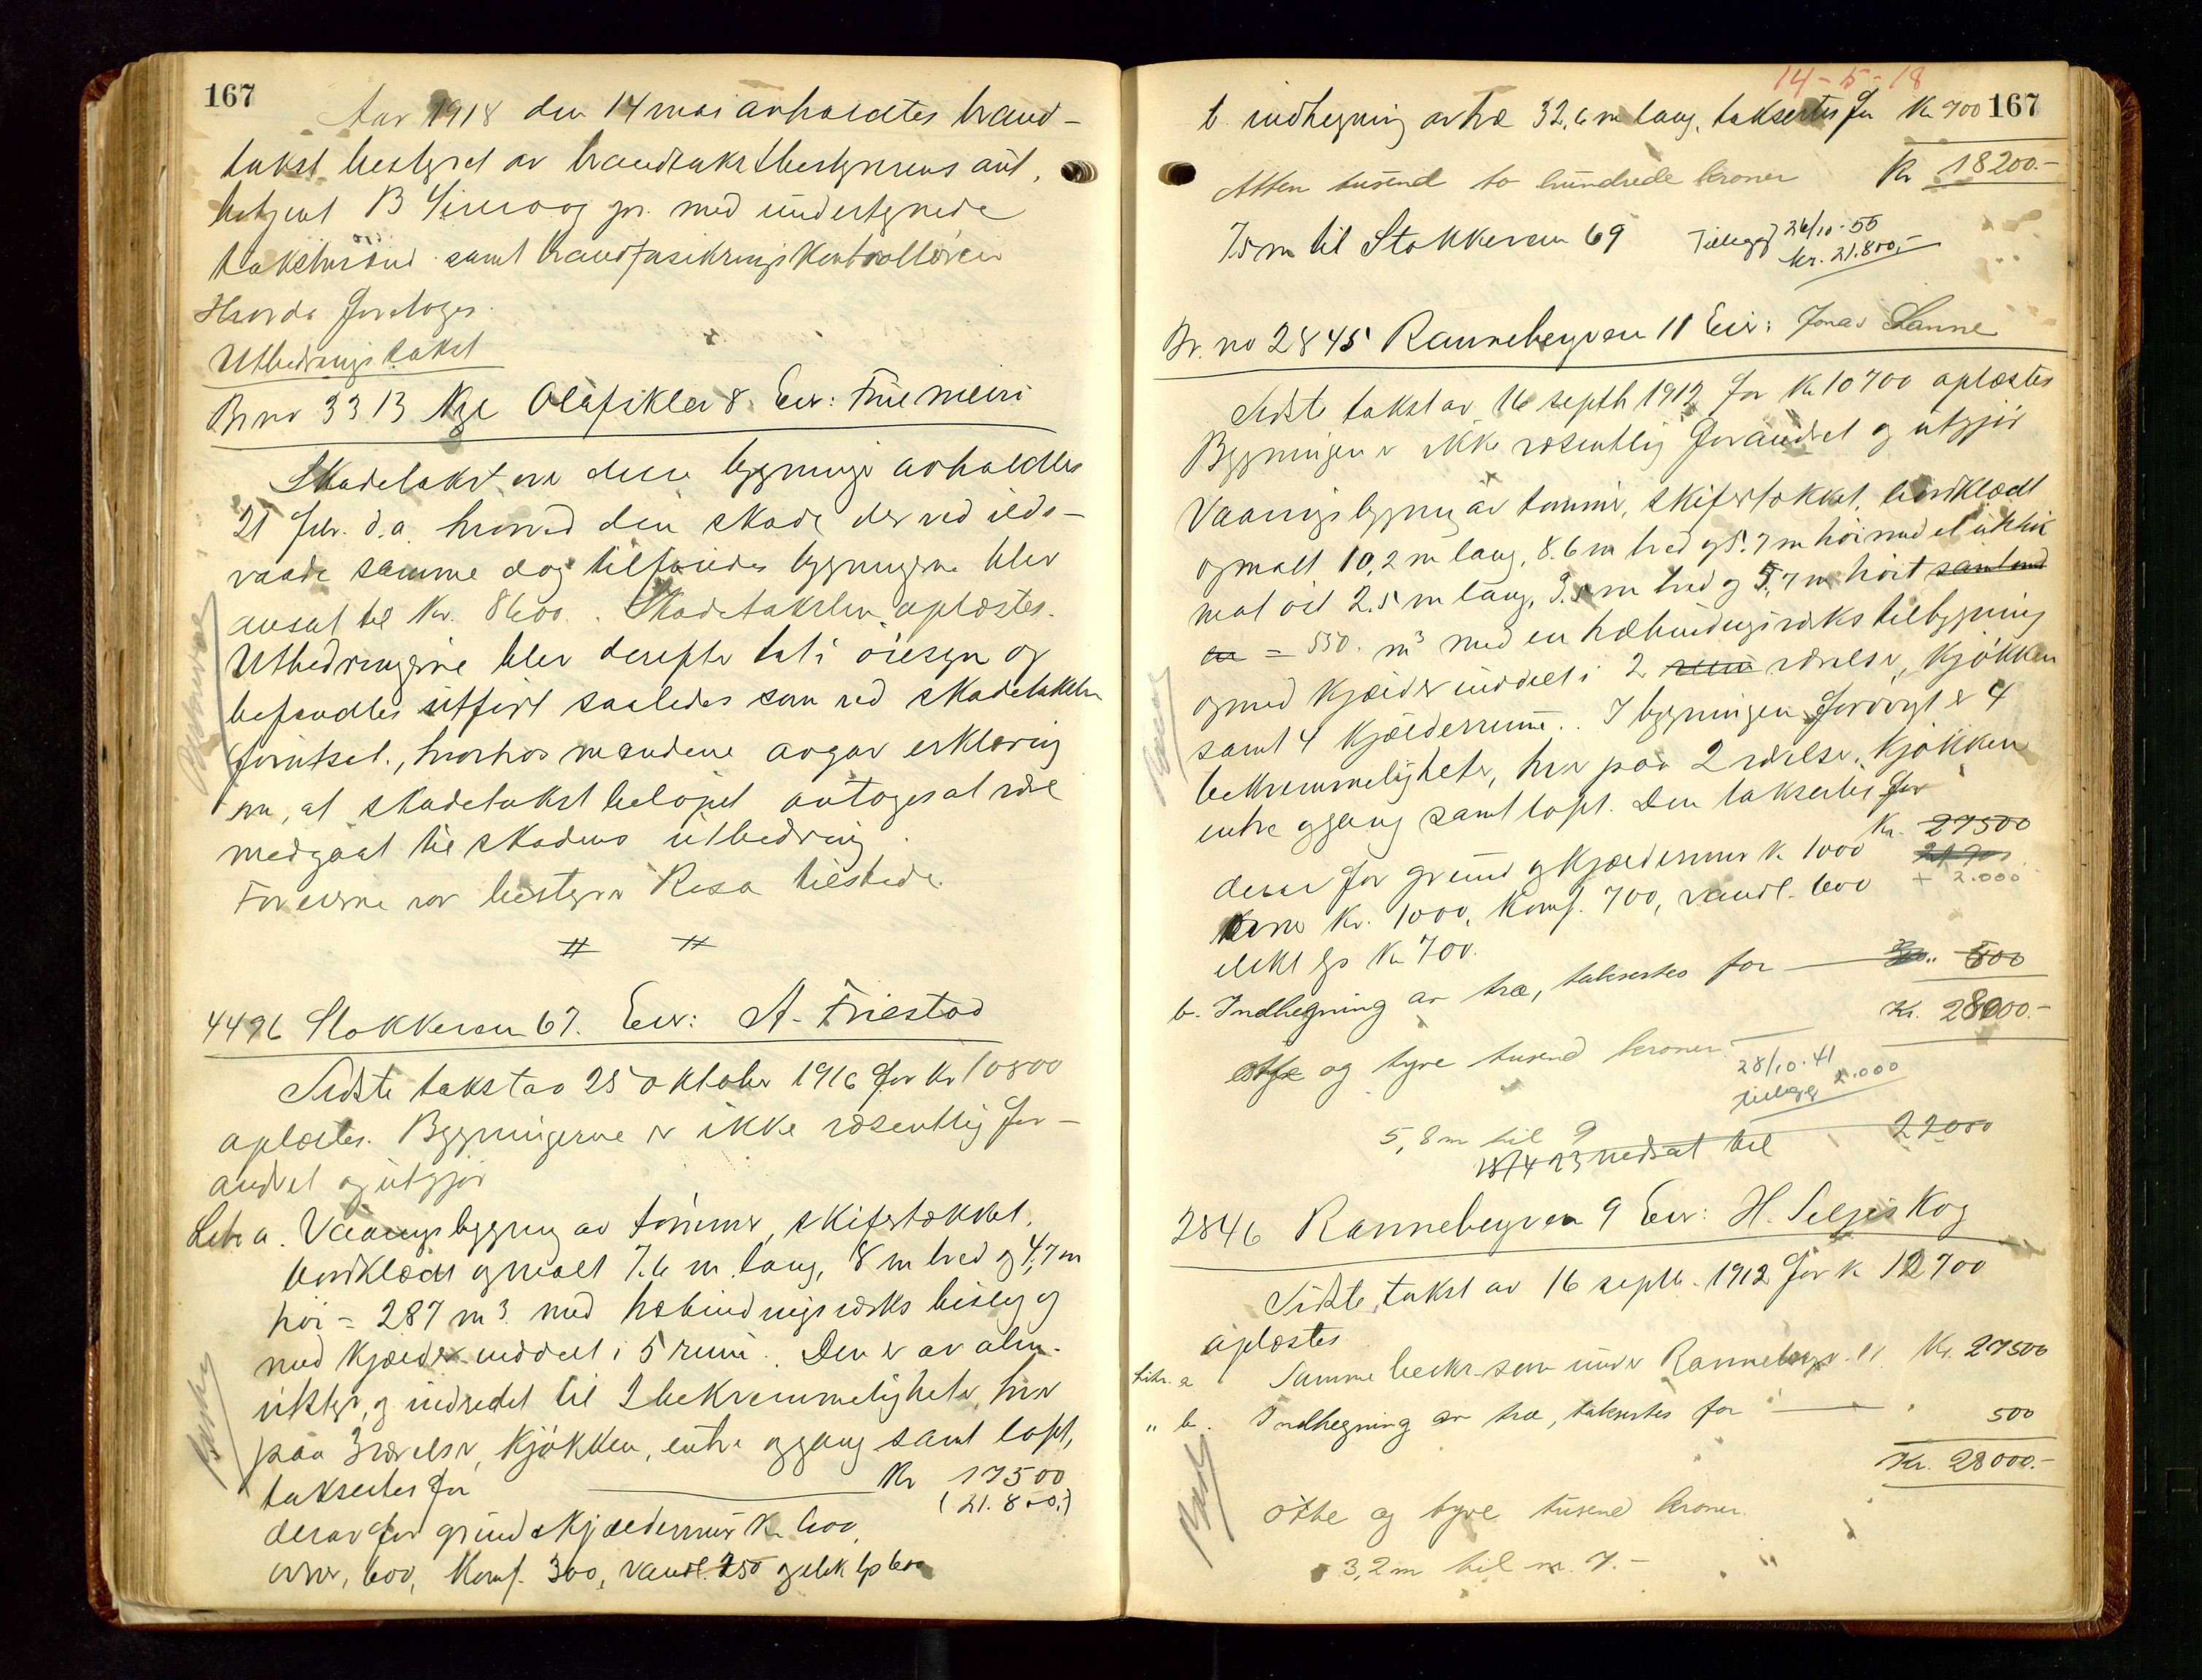 167
Aar 1918 den 14 mai avholdtes brand-
takst bestyret av brandtakstbestyrerens aut.
betjent B jr. med undertegnede
takstmænd samt brandforsikringskontrolløren
foretoges.
Utbedringstakst
Br no 3313 Nye Olafskler 8. Eier: Frue meieri
Skadetakst over disse bygninger avholdtes
21 febr. d.a. hvorved den skade der ved ilds-
vaade samme dag tilføiedes bygningerne blev
ansat til Kr. 8600. Skadetaksten oplæstes.
Utbedringerne blev derefter tat i øiesyn og
befandtes utført saaledes som ved skadetaksten
forutsat, hvorhos mændene avgav erklæring
om, at skadetakstbeløpet antoges at være
medgaat til skadens utbedring.
For eierne var bestyrer Rosa tilstede.
# #
4496 Stokkeveien 67. Eier: A. Friestad
Sidste takst av 25 oktober 1916 for kr 10800
oplæstes. Bygningerne er ikke væsentlig for-
andret og utgjør
Litr a. Vaaningsbygning av tømmer, skifertækket,
bordklædt og malt 7.6 m lang, 8 m bred og 4,7 m
høi = 287 m3. med træbindingsverks bislag og
med kjælder inddelt i 5 rum. Den er av alm.
utstyr, og indredet til 2 bekvemmeligheter, hver
paa 3 værelser, kjøkken, entre og gang samt loft,
takseertes for Kr 17500
(21.800.)
derav for grund & kjældermur kr 600,
ovner, 600, Komf. 300, vandl. 250 og elek lys 600
14-5-18
167
b. indhegning av træ 32,6 m lang, taksertes for Kr 700
Kr 18200.-
Atten tusend to hundrede kroner
7.5 m til Stokkeveien 69
Tillegg 26/10-55
kr. 21.800,-
Br. no 2845 Rannebergveien 11 Eier: Jonas Lanne
Sidste takst av 16 septb 1912 for Kr 10700 oplæstes
Bygningen er ikke væsentlig forandret og utgjør
Vaaningsbygning av tømmer, skifertækket, bordklædt
og malt 10,2 m lang, 8.6 m bred og 5.7 m høi med et utstik
mot øst 2.5 m lang, 3.5 m bred og 5,7 m høit samt med
en = 550. m3 med en træbindingsverks tilbygning
og med kjælder inddelt i 2 rum værelser, kjøkken
samt 4 kjælderrum. I bygningen forøvrigt er 4
bekvemmeligheter, hver paa 2 værelser, kjøkken
entre og gang samt loft. Den taksertes for
Kr. 27500
derav for grund og kjældermur kr 1000
+ 2.000
ovner Kr. 1000, Komf. 700, vandl. 600
elekt lys Kr 700.
b. Indhegning av træ, taksertes for 500
Kr. 28000.-
otte og tyve tusend kroner.
28/10-41
tillegg 2.000
5,8 m til 9
18/4 23 nedsat til 22000
2846 Rannebergveien 9 Eier: H. Seljeskog
Sidste takst av 16 septb. 1912 for kr 12700
oplæstes
Litr. a Samme beskr. som under Rannebergv. 11. Kr. 27500
" b. Indhegning av træ, taksertes for 500
Kr. 28000.-
otte og tyve tusend kroner.
3,2 m til nr. 7.-